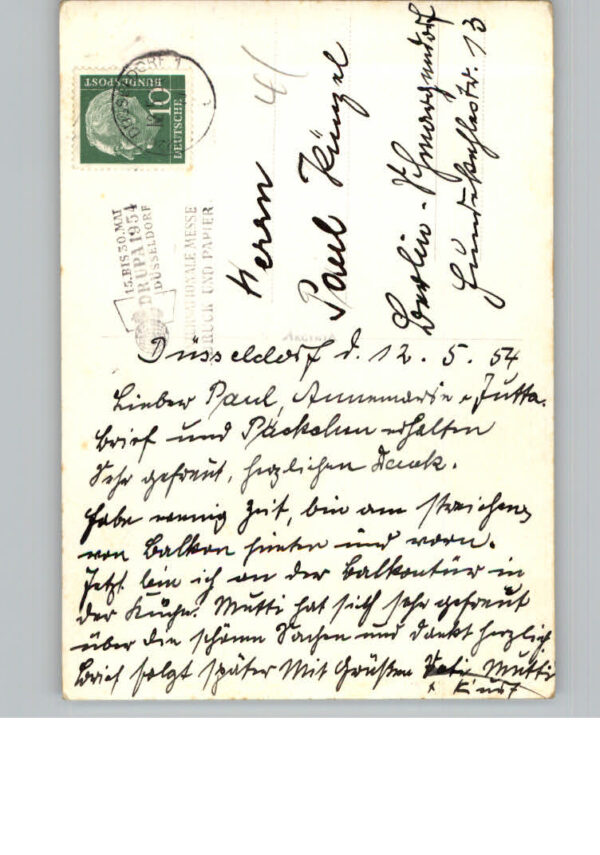 DÜSSELDORF 1
DEUTSCHE
BUNDESPOST
10
15. BIS 30. MAI
DRUPA 1954
DÜSSELDORF
INTERNATIONALE MESSE
DRUCK UND PAPIER
Herrn
Paul Künzel
Berlin-Schmargendorf
13
Düsseldorf d. 12. 5. 54
Lieber Paul, Annemarie u Jutta.
Brief und Päckchen erhalten
Sehr gefreut, herzlichen Dank.
Habe wenig Zeit, bin am streichen
von Balkon hinten und vorn.
Jetzt bin ich an der Balkontür in
der Küche. Mutti hat sich sehr gefreut
über die schönen Sachen und dankt herzlich
Brief folgt später Mit Grüßen Vati Mutti